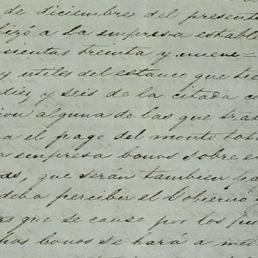 de diciembre del present
lizó a la empresa estable
scientas treinta y nueve=
y utiles del estanco que tie
diez y seis de la citada c
cion alguna de las que tras
a el pago del monto tot
a empresa bonos sobre e
as, que serán tambien pa
deba percibir el Gobierno y
os que se cause por los fu
hos bonos se hará a med